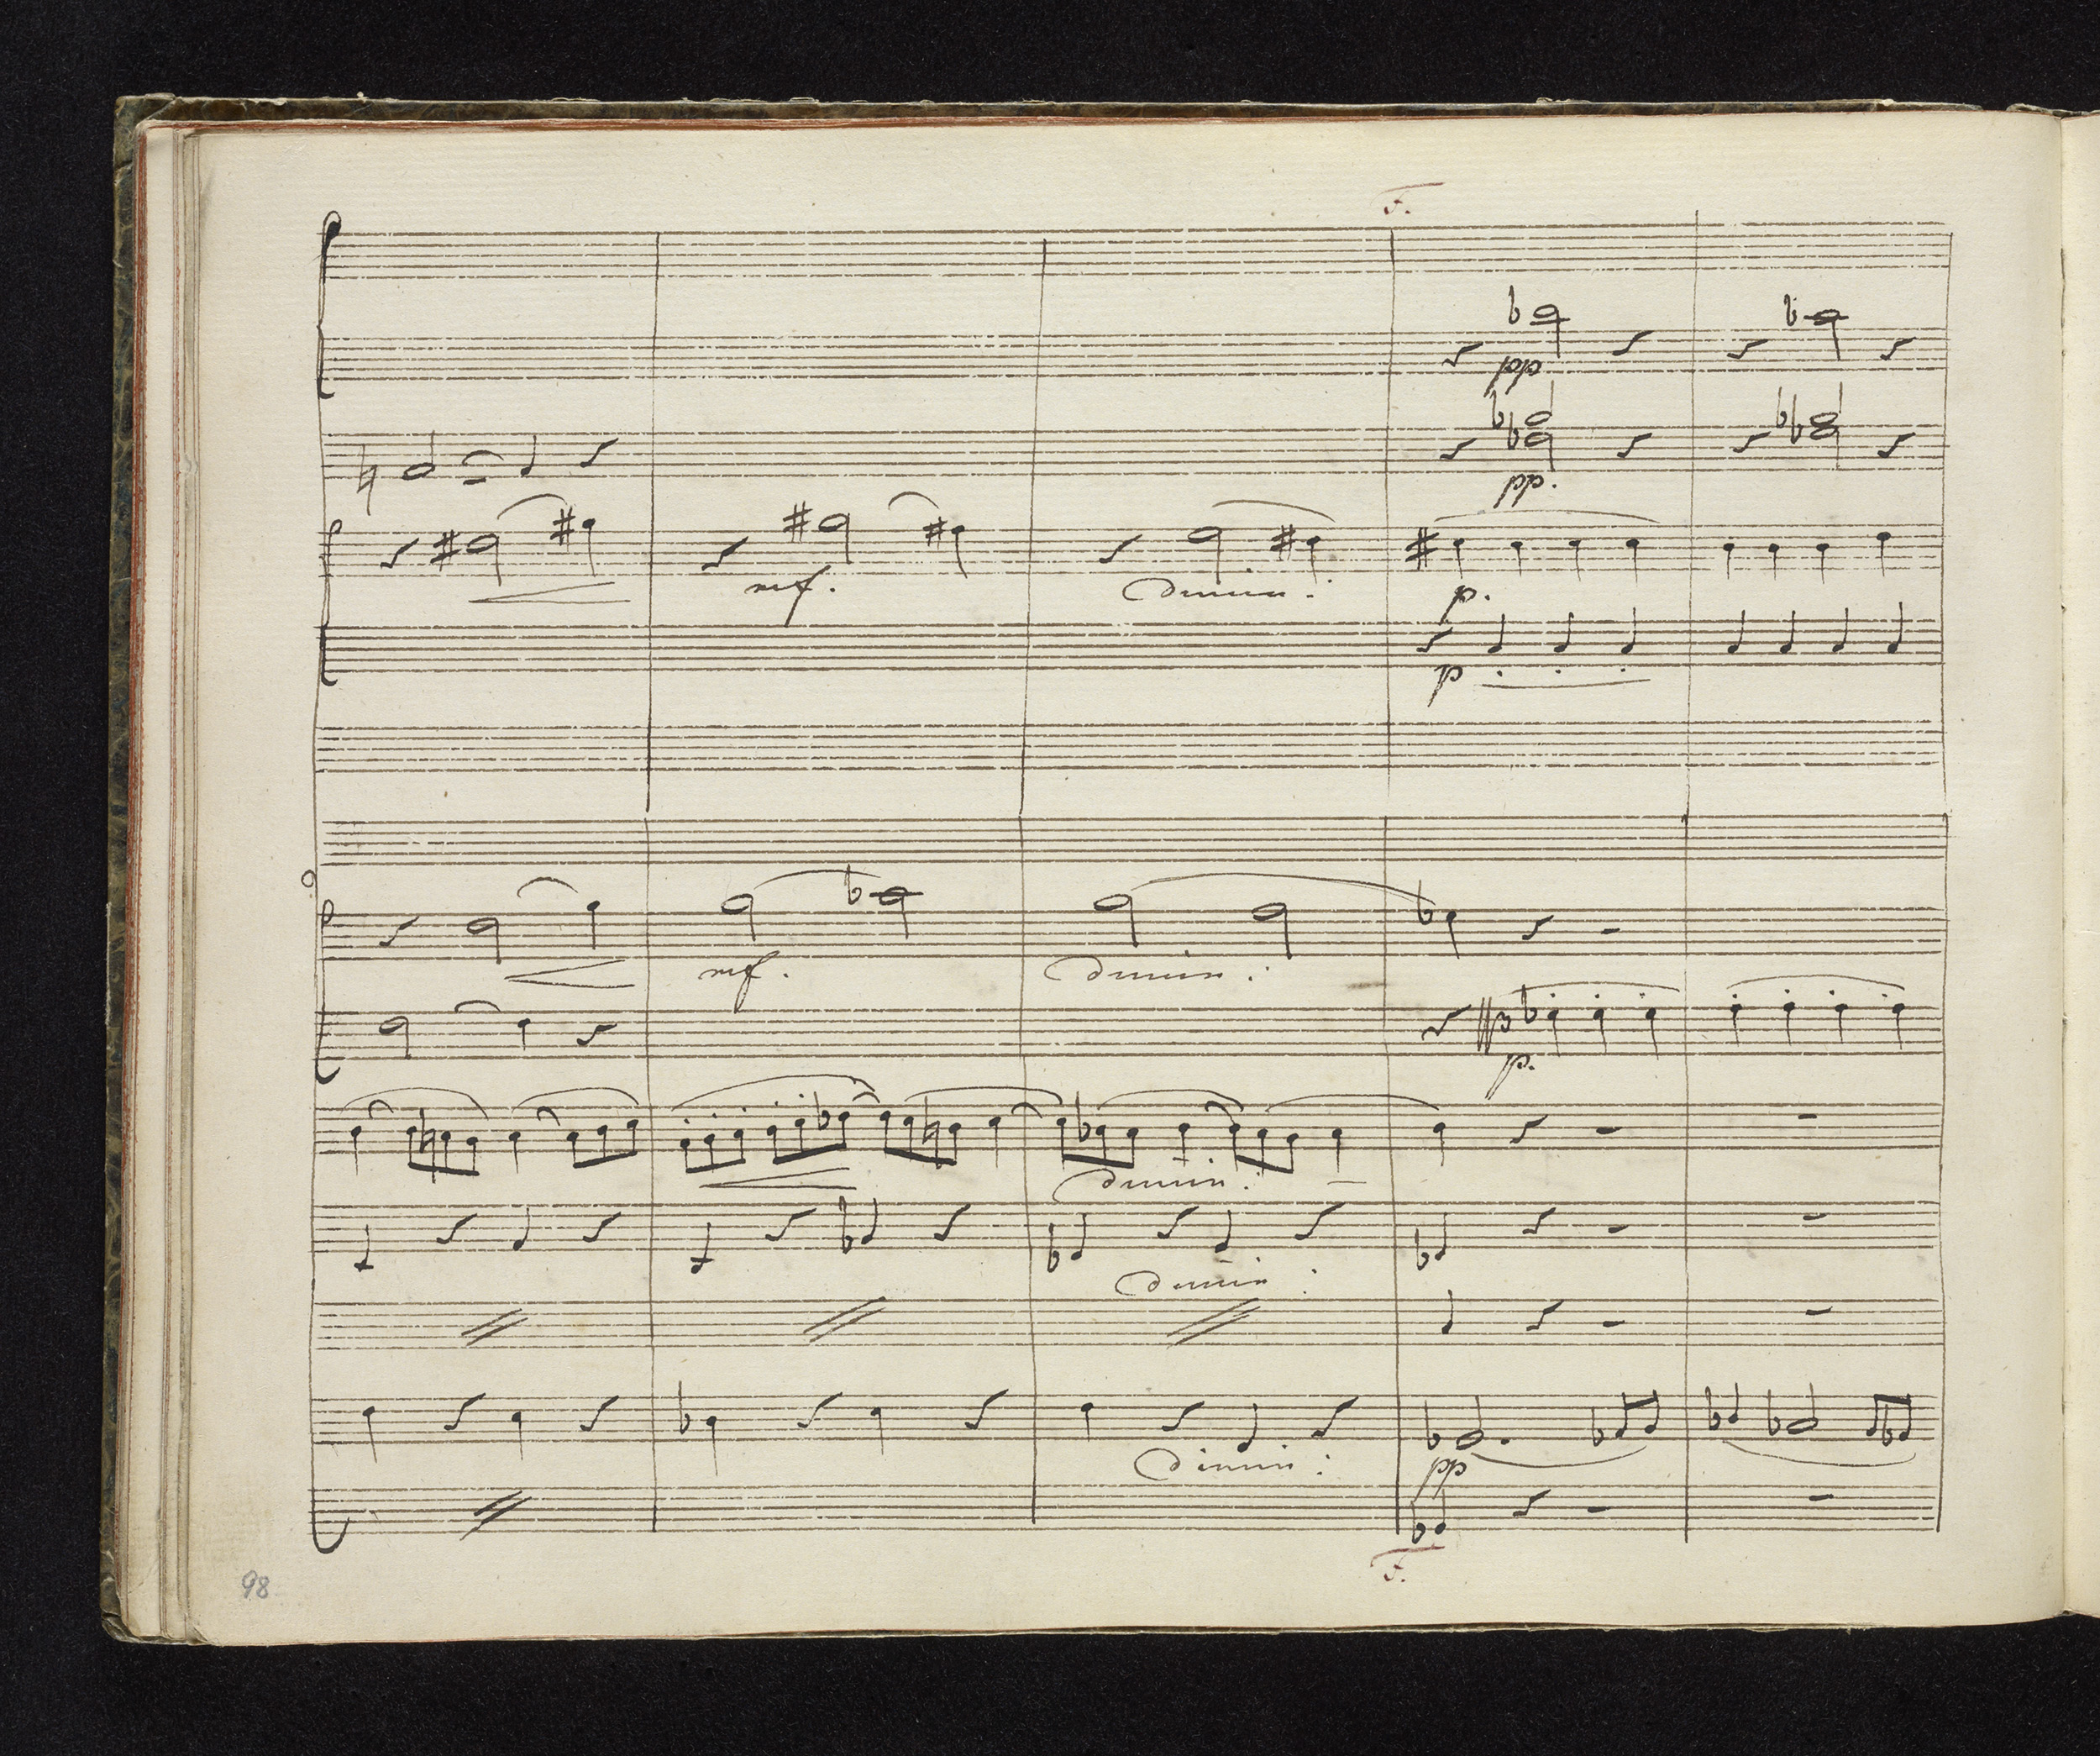 F.
pp
pp.
mf.
dimin.
p.
p
mf.
dimin.
p.
dimin.
dimin.
dimin.
pp
F.
98